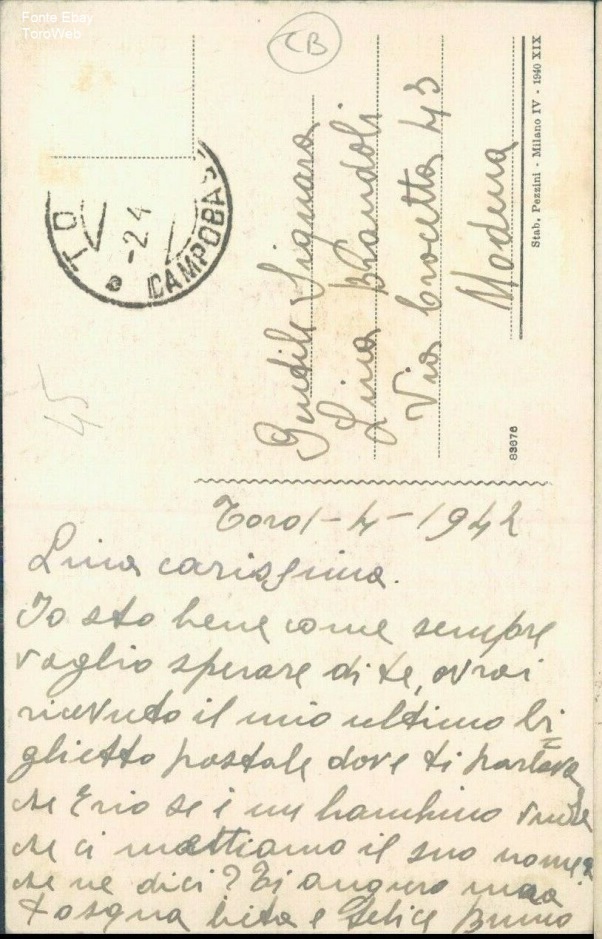 Fonte Ebay
ToroWeb
CB
TO
-2.4
CAMPOBAS
Gentile Signora
Lina Brandoli
Via Crocetta 43
Modena
Stab. Pezzini - Milano IV - 1940 XIX
83676
45
Toro 1-4-1942
Lina carissima.
Io sto bene come sempre
voglio sperare di te, avrai
ricevuto il mio ultimo bi=
glietto postale dove ti parlava
che Erio se è un bambino vuole
che ci mettiamo il suo nome
che ne dici? Ti auguro una
Pasqua lieta e felice Bruno